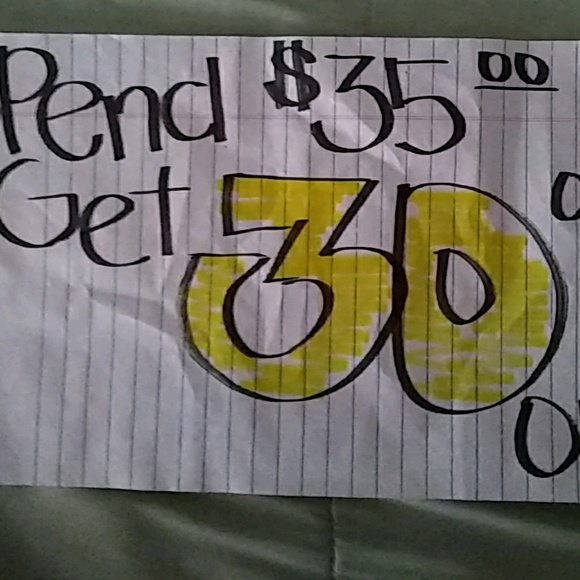 Pend $35 00
Get 30